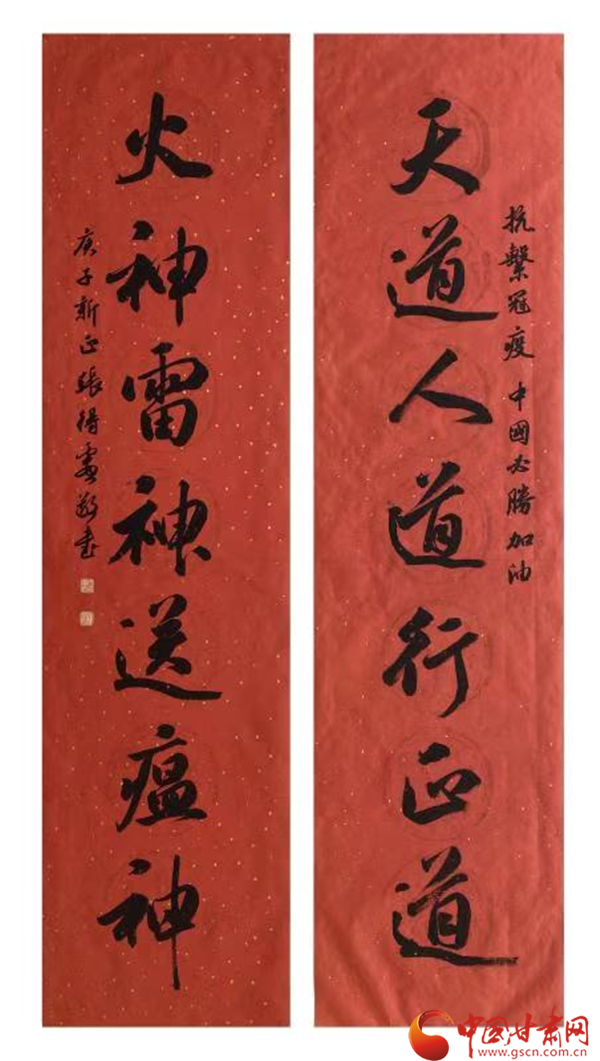 天道人道行正道
抗擊冠疫 中國必勝加油
火神雷神送瘟神
庚子新正張得霱敬書
中国甘肃网
www.gscn.com.cn